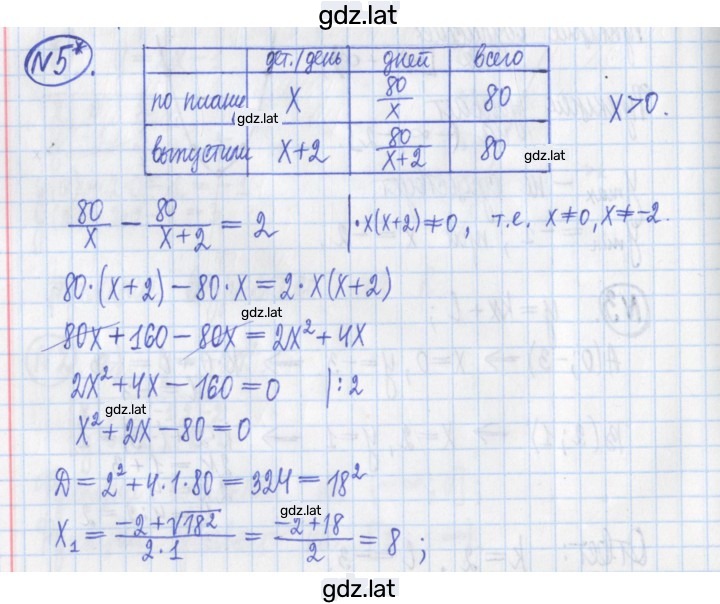 gdz.lat
N5*.
дет./день дней всего
по плану x 80/x 80
gdz.lat
x>0.
выпустили x+2 80/(x+2) 80
gdz.lat
80/x − 80/(x+2) = 2 | ·x(x+2)≠0, т.е. x≠0, x≠−2.
80·(x+2)−80·x=2·x(x+2)
gdz.lat
80x+160−80x=2x²+4x
2x²+4x−160=0 |:2
gdz.lat
x²+2x−80=0
Д=2²+4·1·80=324=18²
gdz.lat
x₁ = (−2+√18²)/(2·1) = (−2+18)/2 = 8 ;
gdz.lat